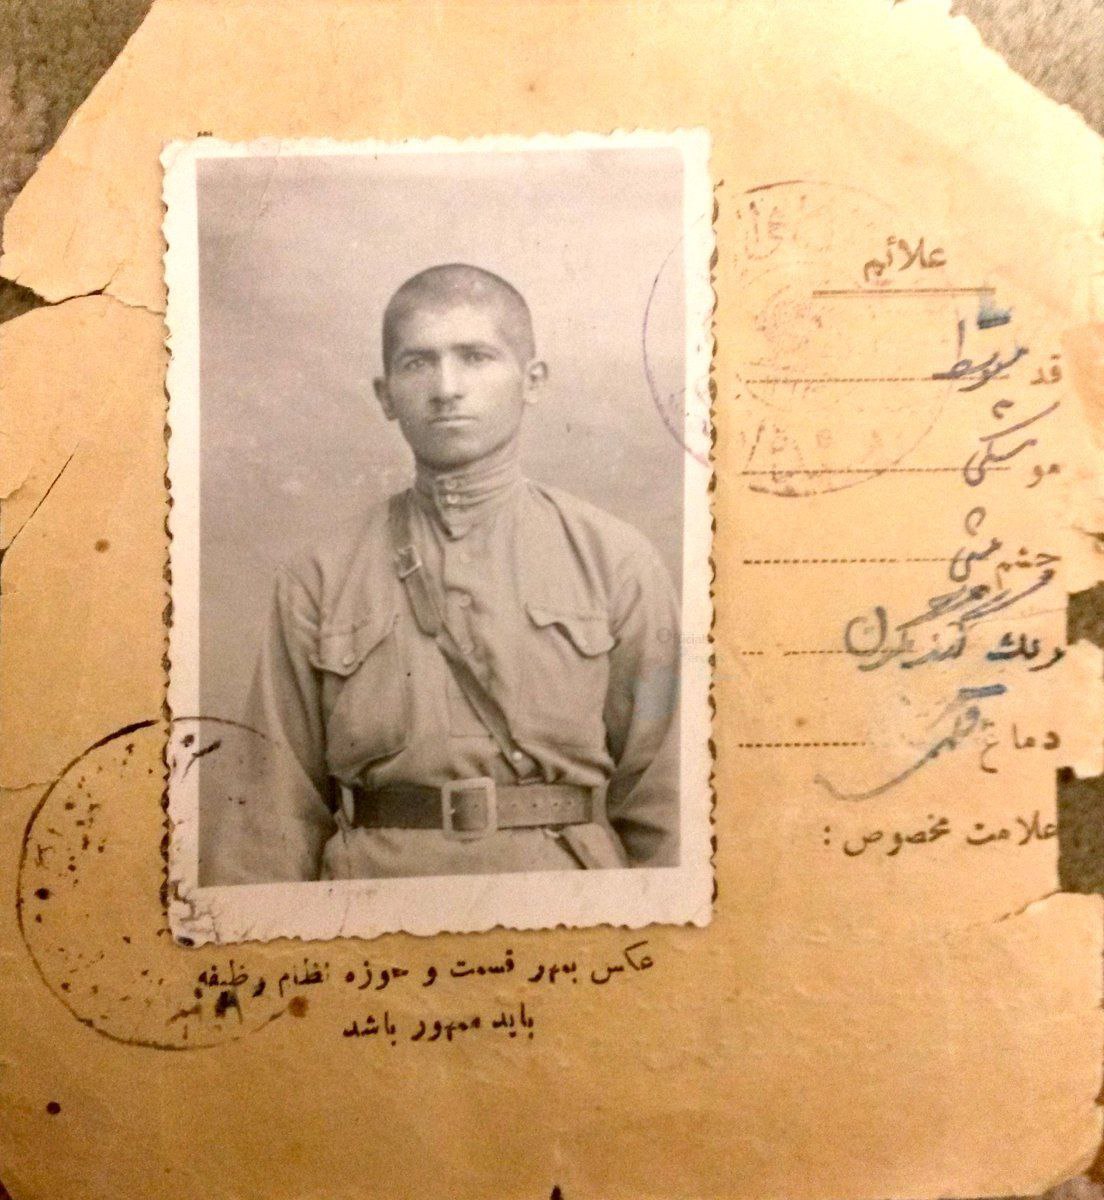 علائم
قد متوسط
مو مشکی
چشم میشی
رنگ گندمگون
دماغ
علامت مخصوص :
عکس بمهر قسمت و حوزه نظام وظیفه
باید ممهور باشد